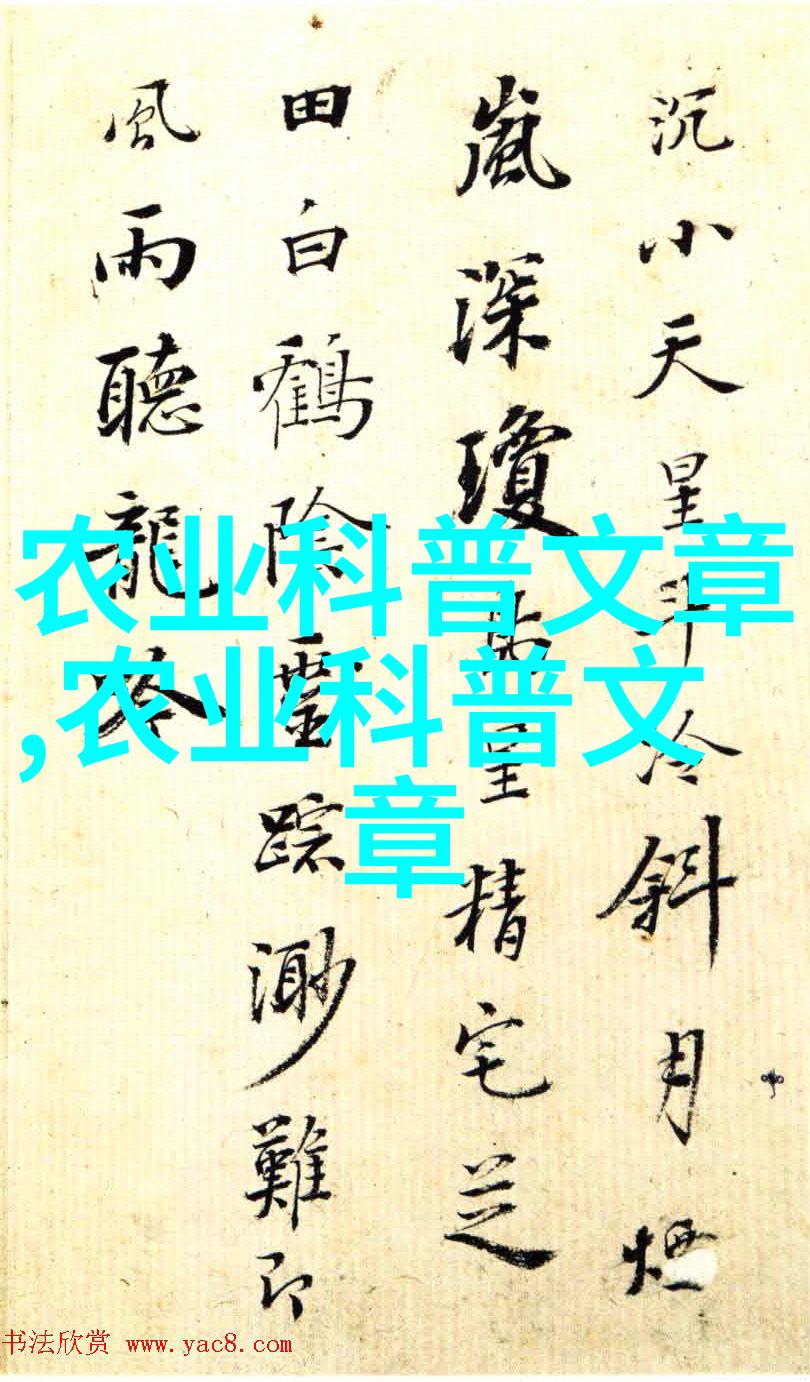 沉小天星斗冷斜月煙
嵐深瓊呈精宅芝
田白鶴陰靈踪渺難即
風雨聽龍吟
农业科普文章
,农业科普文
章
书法欣赏 www.yac8.com